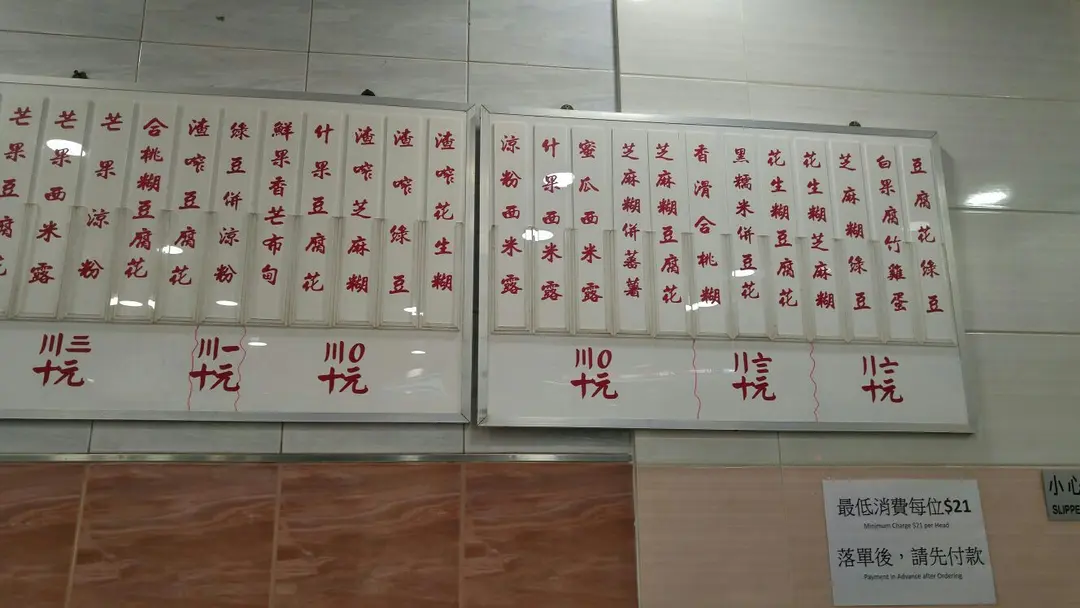 豆腐花綠豆
白果腐竹雞蛋
芝麻糊綠豆
花生糊芝麻糊
花生糊豆腐花
黑糯米併豆花
香滑合桃糊
芝麻糊豆腐花
芝麻糊併蕃薯
蜜瓜西米露
什果西米露
涼粉西米露
〢〧
十元
〢〨
十元
〣〇
十元
渣咋花生糊
渣咋綠豆
渣咋芝麻糊
什果豆腐花
鮮果香芒布甸
綠豆併涼粉
渣咋豆腐花
合桃糊豆腐花
芒果涼粉
芒果西米露
芒果豆腐花
〣〇
十元
〣一
十元
〣三
十元
最低消費每位$21
Minimum Charge $21 per Head
落單後，請先付款
Payment in Advance after Ordering
小心
SLIPPE